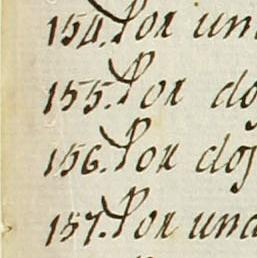 154. Por un
155. Por do
156. Por dos
157. Por una